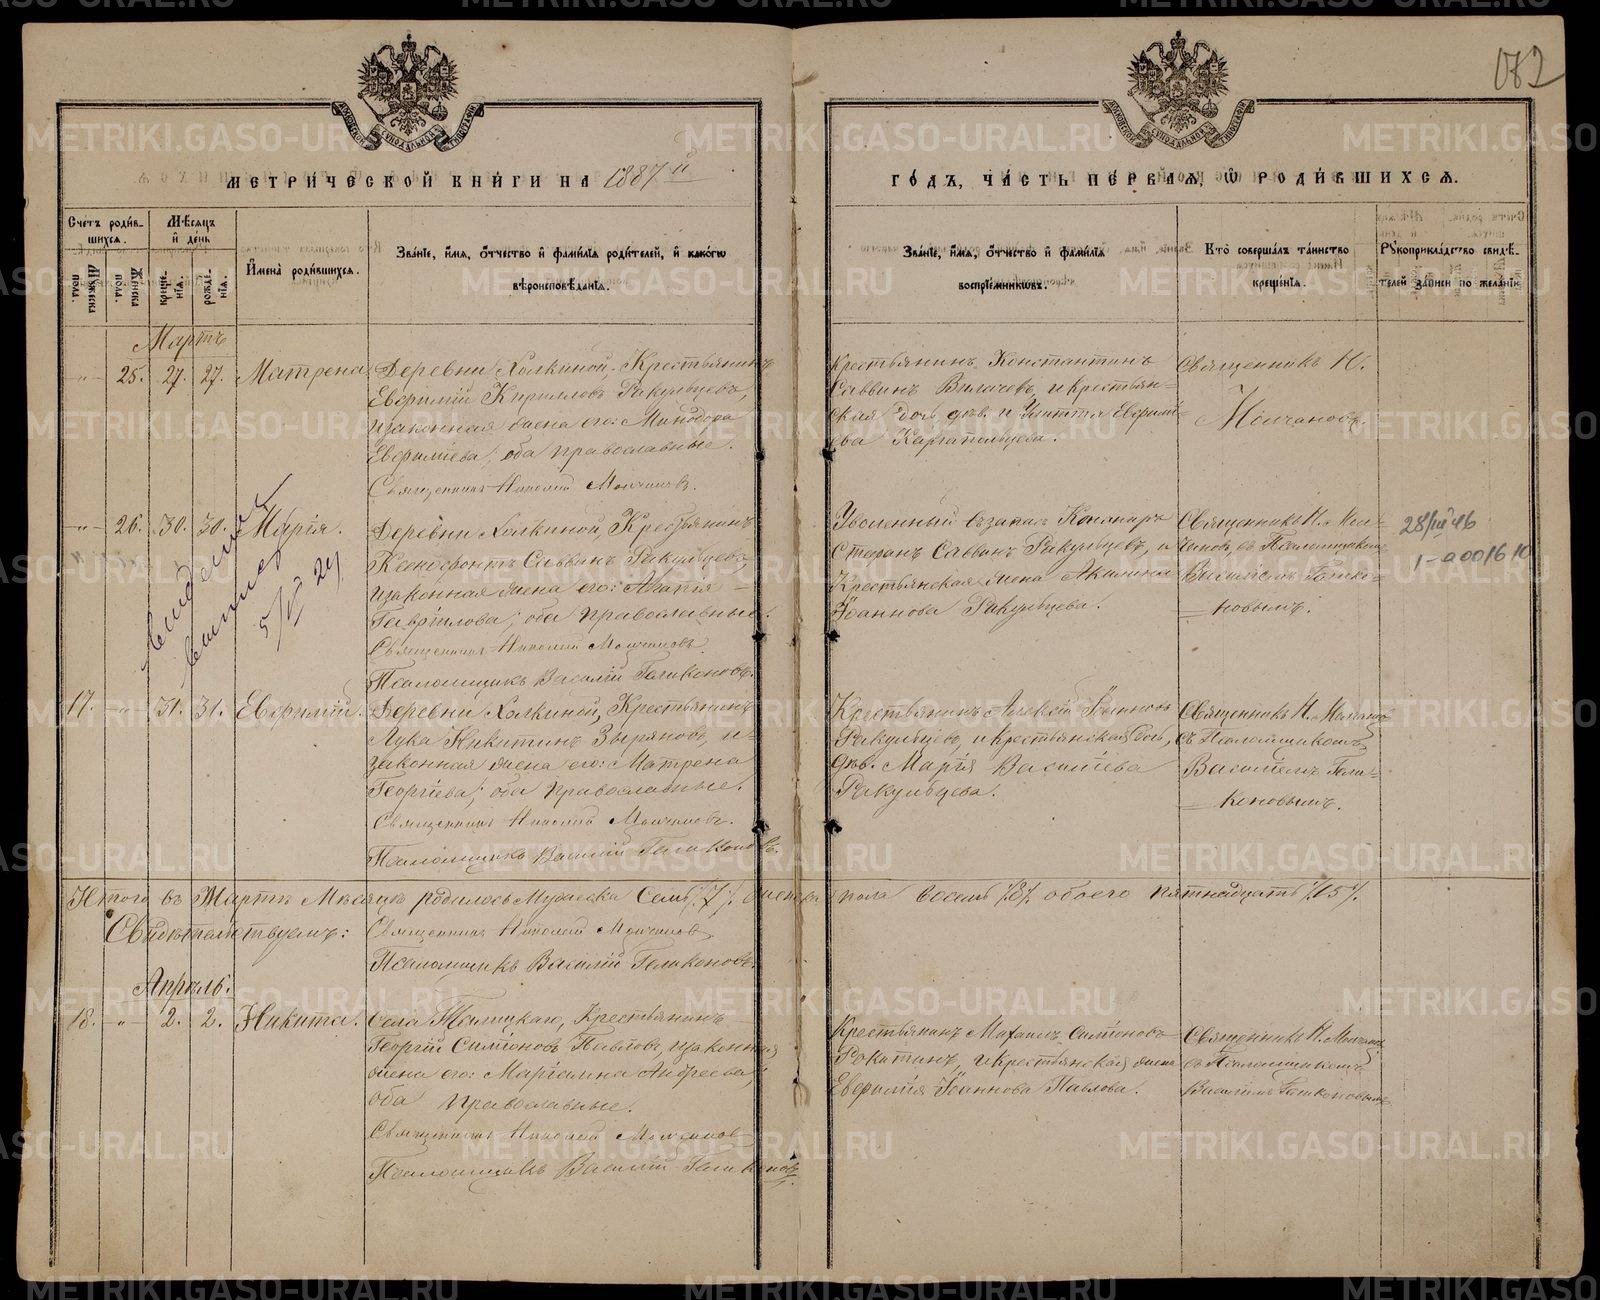 182
МЕТРИЧЕСКОЙ КНИГИ НА 1887 й
ГОДЪ, ЧАСТЬ ПЕРВАЯ, Ѡ РОДИВШИХСЯ.
Счетъ родив-
шихся.
Мѣсяцъ
и день
Мужеска
пола.
Женска
пола.
креще-
нія.
рожде-
нія.
Имена родившихся.
Званіе, имя, отчество и фамилія родителей, и какогѡ
вѣроисповѣданія.
Званіе, имя, отчество и фамилія
воспріемниковъ.
Кто совершалъ таинство
крещенія.
Рукоприкладство свидѣ-
телей записи по желанію
Мартъ
25. 27. 27. Матрена
Деревни Холкиной, Крестьянинъ
Евфимій Кирилловъ Ракульцевъ,
и законная жена его: Минодора
Евфиміева; оба православные.
Священникъ Николай Молчановъ.
Крестьянинъ Константинъ
Саввинъ Вилачевъ, и крестьян-
ская дочь дѣв. Улитта Евфимі-
ева Каргапольцева.
Священникъ Н.
Молчановъ.
26. 30. 30. Марія.
Деревни Холкиной, Крестьянинъ
Ксенофонтъ Саввинъ Ракульцевъ,
и законная жена его: Агапія
Гавріилова; оба православные.
Священникъ Николай Молчановъ.
Псаломщикъ Василій Геликоновъ.
Уволенный въ запасъ Канониръ
Стефанъ Саввинъ Ракульцевъ, и
Крестьянская жена Акилина
Іоаннова Ракульцева.
Священникъ Н. Мол-
чановъ, съ Псаломщикомъ
Василіемъ Гелико-
новымъ.
28/III 46
5/VI 24
17. 31. 31. Евфимій.
Деревни Холкиной, Крестьянинъ
Лука Никитинъ Зыряновъ, и
законная жена его: Матрена
Георгіева; оба православные.
Священникъ Николай Молчановъ.
Псаломщикъ Василій Геликоновъ.
Крестьянинъ Алексей Іоанновъ
Ракульцевъ, и крестьянская дочь,
дѣв. Марія Василіева
Ракульцева.
Священникъ Н. Молчановъ
съ Псаломщикомъ
Василіемъ Гели-
коновымъ.
Итого въ Мартѣ Мѣсяцѣ родилось Мужеска Семь /7/ женска пола восемь /8/ обоего пятнадцать /15/.
Свидѣтельствуемъ: Священникъ Николай Молчановъ
Псаломщикъ Василій Геликоновъ.
Апрѣль.
18. 2. 2. Никита.
Села Талицкаго, Крестьянинъ
Георгій Симіоновъ Павловъ, и законная
жена его: Маріамна Андреева;
оба православные.
Священникъ Николай Молчановъ
Псаломщикъ Василій Геликоновъ
Крестьянинъ Михаилъ Симіоновъ
Рокитинъ, и крестьянская жена
Евфимія Іоаннова Павлова.
Священникъ Н. Молчановъ
съ Псаломщикомъ
Василіемъ Геликоновымъ
METRIKI.GASO-URAL.RU